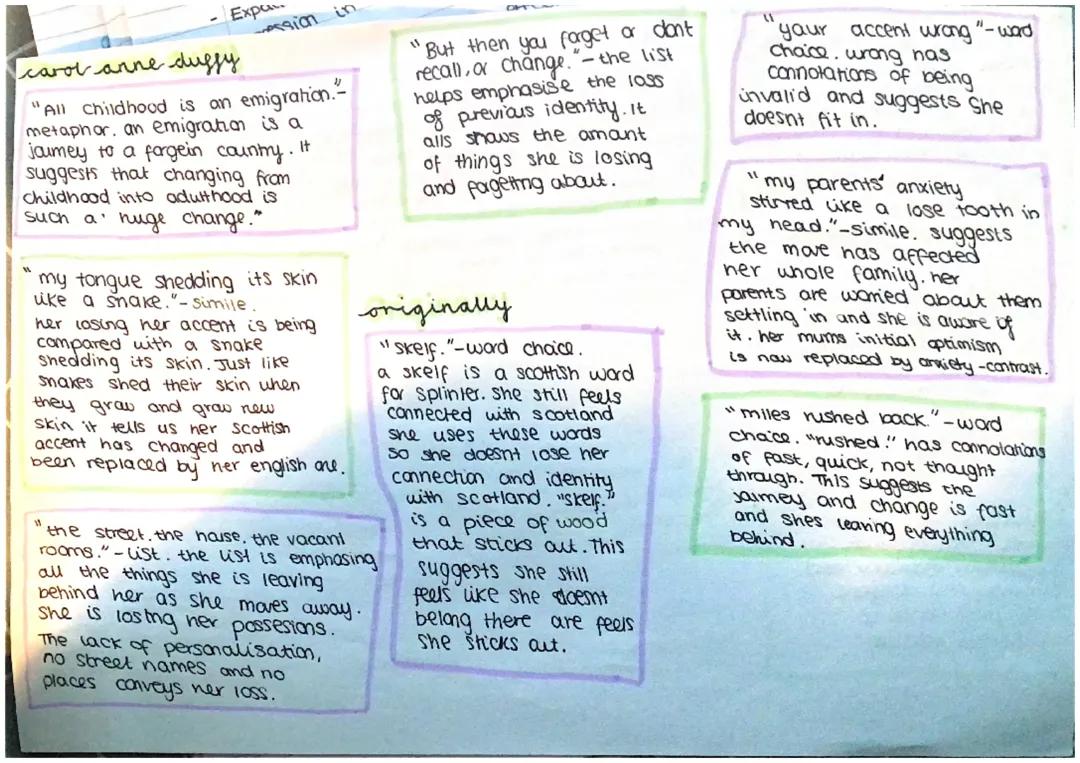 - Expan
ession in
carol anne duffy
"All childhood is an emigration."-
metaphor. an emigration is a
journey to a forgein country. It
suggests that changing from
childhood into adulthood is
such a huge change."
"my tongue shedding its skin
like a snake."-simile.
her losing her accent is being
compared with a snake
shedding its skin. Just like
snakes shed their skin when
they grow and grow new
skin it tells us her scottish
accent has changed and
been replaced by her english one.
"the street. the house. the vacant
rooms."-list. the list is emphasing
all the things she is leaving
behind her as she moves away.
She is losing her possesions.
The lack of personalisation,
no street names and no
places conveys her loss.
"But then you forget or dont
recall, or change."-the list
helps emphasise the loss
of previous identity. It
alls shows the amount
of things she is losing
and forgeting about.
originally
"skelf."-word choice.
a skelf is a scottish word
for splinter. She still feels
connected with scotland
she uses these words
so she doesnt lose her
connection and identity
with scotland. "skelf."
is a piece of wood
that sticks out. This
suggests she still
feels like she doesnt
belong there are feels
she sticks out.
"your accent wrong"-word
choice. wrong has
connotations of being
invalid and suggests she
doesnt fit in.
"my parents' anxiety
stirred like a lose tooth in
my head."-simile. suggests
the move has affected
her whole family. her
parents are worried about them
settling in and she is aware of
it. her mums initial optimism
is now replaced by anxiety-contrast.
"miles rushed back."-word
choice. "rushed." has connotations
of fast, quick, not thought
through. This suggests the
journey and change is fast
and shes leaving everything
behind.